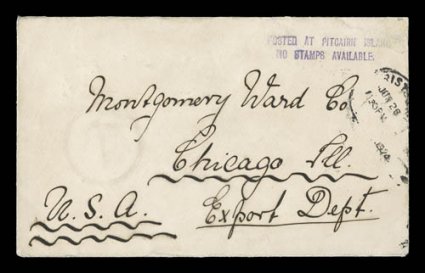 POSTED AT PITCAIRN ISLAND
NO STAMPS AVAILABLE.
JUN 26
Montgomery Ward Co
Chicago Ill.
U.S.A. Export Dept.